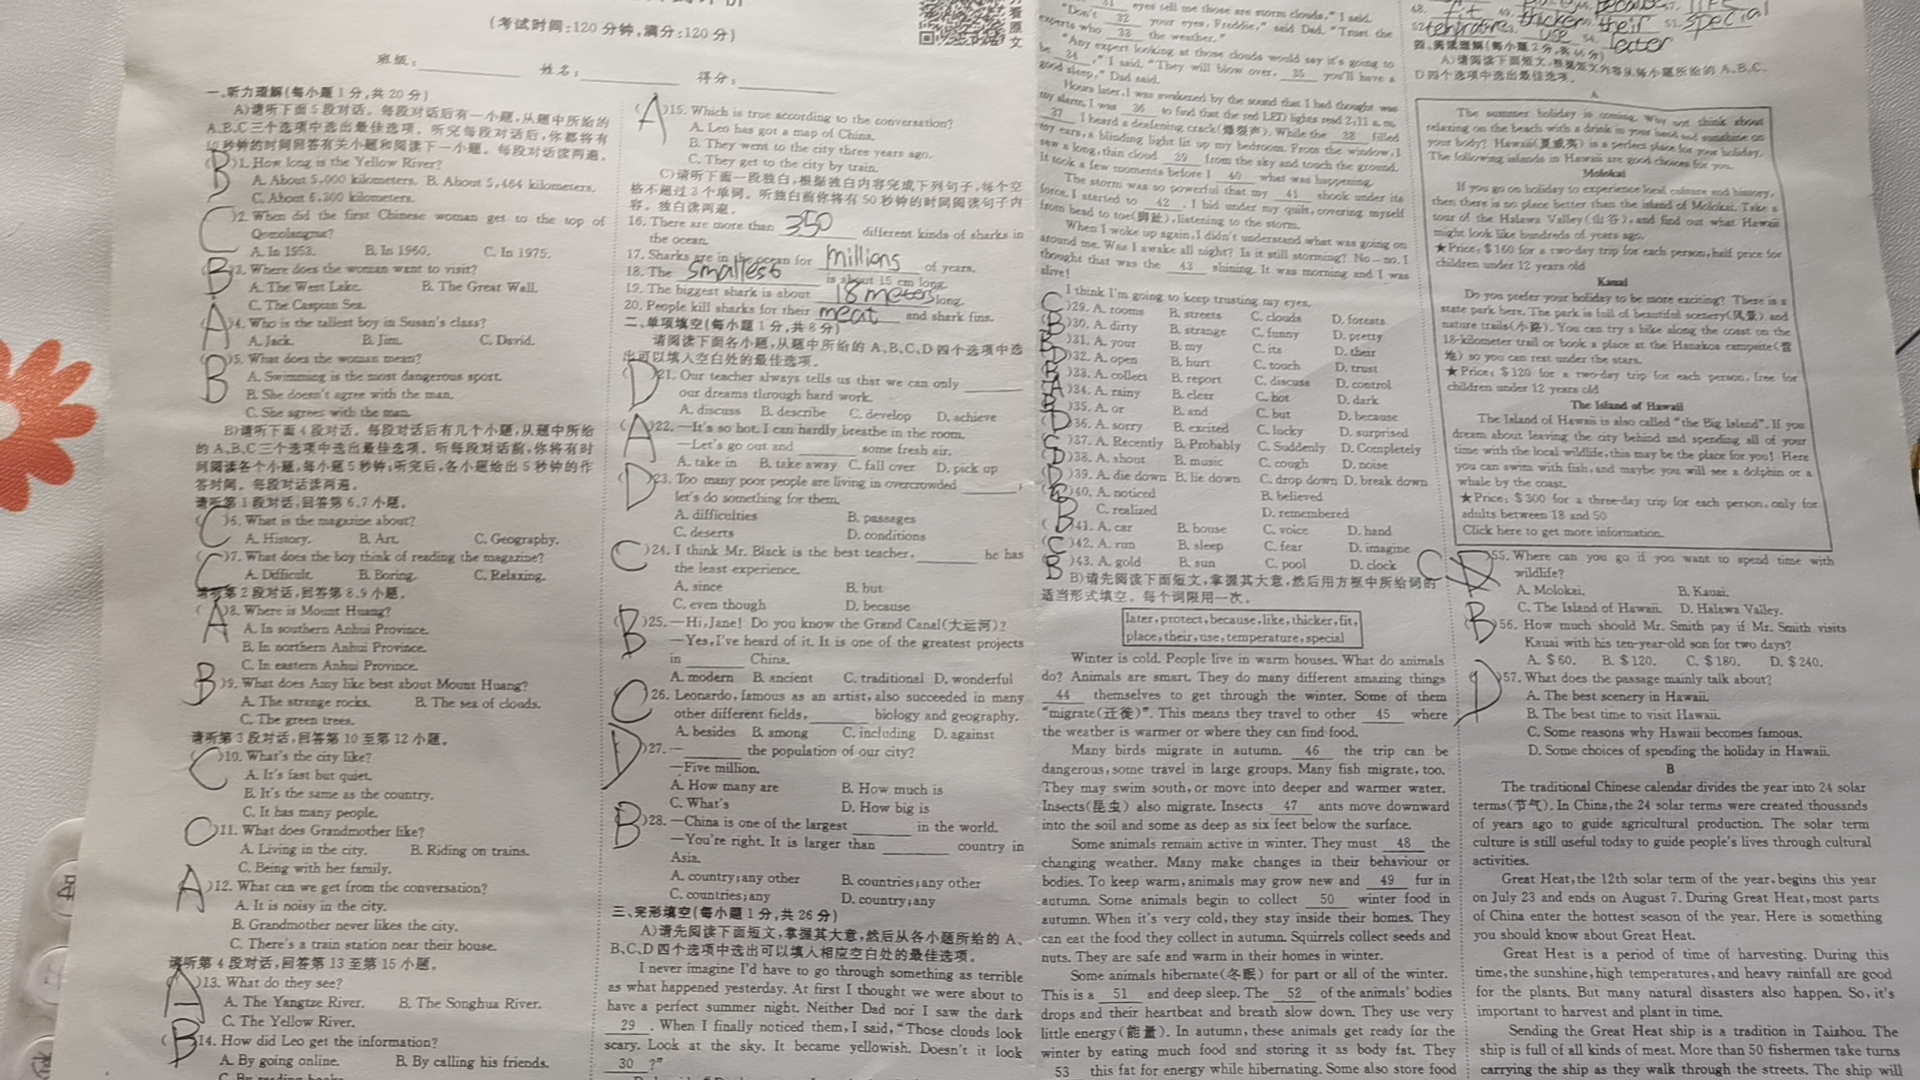 (考试时间:120分钟,满分:120分)
班级: 姓名: 得分:
一、听力理解(每小题1分,共20分)
A)请听下面5段对话。每段对话后有一小题,从题中所给的
A、B、C三个选项中选出最佳选项。听完每段对话后,你都将有
10秒钟的时间回答有关小题和阅读下一小题。每段对话读两遍。
B )1. How long is the Yellow River?
A. About 5,000 kilometers. B. About 5,464 kilometers.
C. About 6,300 kilometers.
C )2. When did the first Chinese woman get to the top of
Qomolangma?
A. In 1953. B. In 1960. C. In 1975.
B )3. Where does the woman want to visit?
A. The West Lake. B. The Great Wall.
C. The Caspian Sea.
A )4. Who is the tallest boy in Susan's class?
A. Jack. B. Jim. C. David.
B )5. What does the woman mean?
A. Swimming is the most dangerous sport.
B. She doesn't agree with the man.
C. She agrees with the man.
B)请听下面4段对话。每段对话后有几个小题,从题中所给
的A、B、C三个选项中选出最佳选项。听每段对话前,你将有时
间阅读各个小题,每小题5秒钟;听完后,各小题给出5秒钟的作
答时间。每段对话读两遍。
请听第1段对话,回答第6、7小题。
C )6. What is the magazine about?
A. History. B. Art. C. Geography.
C )7. What does the boy think of reading the magazine?
A. Difficult. B. Boring. C. Relaxing.
请听第2段对话,回答第8、9小题。
A )8. Where is Mount Huang?
A. In southern Anhui Province.
B. In northern Anhui Province.
C. In eastern Anhui Province.
B )9. What does Amy like best about Mount Huang?
A. The strange rocks. B. The sea of clouds.
C. The green trees.
请听第3段对话,回答第10至第12小题。
C )10. What's the city like?
A. It's fast but quiet.
B. It's the same as the country.
C. It has many people.
C )11. What does Grandmother like?
A. Living in the city. B. Riding on trains.
C. Being with her family.
A )12. What can we get from the conversation?
A. It is noisy in the city.
B. Grandmother never likes the city.
C. There's a train station near their house.
请听第4段对话,回答第13至第15小题。
A )13. What do they see?
A. The Yangtze River. B. The Songhua River.
C. The Yellow River.
B )14. How did Leo get the information?
A. By going online. B. By calling his friends.
A )15. Which is true according to the conversation?
A. Leo has got a map of China.
B. They went to the city three years ago.
C. They get to the city by train.
C)请听下面一段独白,根据独白内容完成下列句子,每个空
格不超过3个单词。听独白前你将有50秒钟的时间阅读句子内
容。独白读两遍。
16. There are more than 350 different kinds of sharks in
the ocean.
17. Sharks are in the ocean for millions of years.
18. The smallest is about 15 cm long.
19. The biggest shark is about 18 meters long.
20. People kill sharks for their meat and shark fins.
二、单项填空(每小题1分,共8分)
请阅读下面各小题,从题中所给的A、B、C、D四个选项中选
出可以填入空白处的最佳选项。
D )21. Our teacher always tells us that we can only ______
our dreams through hard work.
A. discuss B. describe C. develop D. achieve
A )22. —It's so hot. I can hardly breathe in the room.
—Let's go out and ______ some fresh air.
A. take in B. take away C. fall over D. pick up
D )23. Too many poor people are living in overcrowded ______,
let's do something for them.
A. difficulties B. passages
C. deserts D. conditions
C )24. I think Mr. Black is the best teacher, ______ he has
the least experience.
A. since B. but
C. even though D. because
B )25. —Hi, Jane! Do you know the Grand Canal(大运河)?
—Yes, I've heard of it. It is one of the greatest projects
in ______ China.
A. modern B. ancient C. traditional D. wonderful
C )26. Leonardo, famous as an artist, also succeeded in many
other different fields, ______ biology and geography.
A. besides B. among C. including D. against
D )27. — ______ the population of our city?
—Five million.
A. How many are B. How much is
C. What's D. How big is
B )28. —China is one of the largest ______ in the world.
—You're right. It is larger than ______ country in
Asia.
A. country; any other B. countries; any other
C. countries; any D. country; any
三、完形填空(每小题1分,共26分)
A)请先阅读下面短文,掌握其大意,然后从各小题所给的A、
B、C、D四个选项中选出可以填入相应空白处的最佳选项。
I never imagine I'd have to go through something as terrible
as what happened yesterday. At first I thought we were about to
have a perfect summer night. Neither Dad nor I saw the dark
29 . When I finally noticed them, I said, "Those clouds look
scary. Look at the sky. It became yellowish. Doesn't it look
30 ?"
31 eyes tell me those are storm clouds," I said.
"Don't 32 your eyes, Freddie," said Dad. "Trust the
experts who 33 the weather."
"Any expert looking at those clouds would say it's going to
be 34 ," I said. "They will blow over, 35 you'll have a
good sleep," Dad said.
Hours later, I was awakened by the sound that I had thought was
my alarm. I was 36 to find that the red LED lights read 2:11 a.m.
37 I heard a deafening crack(爆裂声). While the 38 filled
my ears, a blinding light lit up my bedroom. From the window, I
saw a long, thin cloud 39 from the sky and touch the ground.
It took a few moments before I 40 what was happening.
The storm was so powerful that my 41 shook under its
force. I started to 42 . I hid under my quilt, covering myself
from head to toe(脚趾), listening to the storm.
When I woke up again, I didn't understand what was going on
around me. Was I awake all night? Is it still storming? No—no. I
thought that was the 43 shining. It was morning and I was
alive!
I think I'm going to keep trusting my eyes.
C )29. A. rooms B. streets C. clouds D. forests
B )30. A. dirty B. strange C. funny D. pretty
B )31. A. your B. my C. its D. their
D )32. A. open B. hurt C. touch D. trust
B )33. A. collect B. report C. discuss D. control
A )34. A. rainy B. clear C. hot D. dark
B )35. A. or B. and C. but D. because
D )36. A. sorry B. excited C. lucky D. surprised
C )37. A. Recently B. Probably C. Suddenly D. Completely
D )38. A. shout B. music C. cough D. noise
)39. A. die down B. lie down C. drop down D. break down
)40. A. noticed B. believed
C. realized D. remembered
B )41. A. car B. house C. voice D. hand
C )42. A. run B. sleep C. fear D. imagine
B )43. A. gold B. sun C. pool D. clock
B)请先阅读下面短文,掌握其大意,然后用方框中所给词的
适当形式填空。每个词限用一次。
later, protect, because, like, thicker, fit,
place, their, use, temperature, special
Winter is cold. People live in warm houses. What do animals
do? Animals are smart. They do many different amazing things
44 themselves to get through the winter. Some of them
"migrate(迁徙)". This means they travel to other 45 where
the weather is warmer or where they can find food.
Many birds migrate in autumn. 46 the trip can be
dangerous, some travel in large groups. Many fish migrate, too.
They may swim south, or move into deeper and warmer water.
Insects(昆虫) also migrate. Insects 47 ants move downward
into the soil and some as deep as six feet below the surface.
Some animals remain active in winter. They must 48 the
changing weather. Many make changes in their behaviour or
bodies. To keep warm, animals may grow new and 49 fur in
autumn. Some animals begin to collect 50 winter food in
autumn. When it's very cold, they stay inside their homes. They
can eat the food they collect in autumn. Squirrels collect seeds and
nuts. They are safe and warm in their homes in winter.
Some animals hibernate(冬眠) for part or all of the winter.
This is a 51 and deep sleep. The 52 of the animals' bodies
drops and their heartbeat and breath slow down. They use very
little energy(能量). In autumn, these animals get ready for the
winter by eating much food and storing it as body fat. They
53 this fat for energy while hibernating. Some also store food
48. fit 49. thicker 50. their 51. special
use 54. later
四、阅读理解(每小题2分,共46分)
A)请阅读下面短文,根据短文内容从每小题所给的A、B、C、
D四个选项中选出最佳选项。
A
The summer holiday is coming. Why not think about
relaxing on the beach with a drink in your hand and sunshine on
your body? Hawaii(夏威夷) is a perfect place for your holiday.
The following islands in Hawaii are good choices for you.
Molokai
If you go on holiday to experience local culture and history,
then there is no place better than the island of Molokai. Take a
tour of the Halawa Valley(山谷), and find out what Hawaii
might look like hundreds of years ago.
★Price: $160 for a two-day trip for each person, half price for
children under 12 years old
Kauai
Do you prefer your holiday to be more exciting? There is a
state park here. The park is full of beautiful scenery(风景) and
nature trails(小路). You can try a hike along the coast on the
18-kilometer trail or book a place at the Hanakoa campsite(营
地) so you can rest under the stars.
★Price: $120 for a two-day trip for each person, free for
children under 12 years old
The Island of Hawaii
The Island of Hawaii is also called "the Big Island". If you
dream about leaving the city behind and spending all of your
time with the local wildlife, this may be the place for you! Here
you can swim with fish, and maybe you will see a dolphin or a
whale by the coast.
★Price: $300 for a three-day trip for each person, only for
adults between 18 and 50
Click here to get more information.
C )55. Where can you go if you want to spend time with
wildlife?
A. Molokai. B. Kauai.
C. The Island of Hawaii. D. Halawa Valley.
B )56. How much should Mr. Smith pay if Mr. Smith visits
Kauai with his ten-year-old son for two days?
A. $60. B. $120. C. $180. D. $240.
D )57. What does the passage mainly talk about?
A. The best scenery in Hawaii.
B. The best time to visit Hawaii.
C. Some reasons why Hawaii becomes famous.
D. Some choices of spending the holiday in Hawaii.
B
The traditional Chinese calendar divides the year into 24 solar
terms(节气). In China, the 24 solar terms were created thousands
of years ago to guide agricultural production. The solar term
culture is still useful today to guide people's lives through cultural
activities.
Great Heat, the 12th solar term of the year, begins this year
on July 23 and ends on August 7. During Great Heat, most parts
of China enter the hottest season of the year. Here is something
you should know about Great Heat.
Great Heat is a period of time of harvesting. During this
time, the sunshine, high temperatures, and heavy rainfall are good
for the plants. But many natural disasters also happen. So, it's
important to harvest and plant in time.
Sending the Great Heat ship is a tradition in Taizhou. The
ship is full of all kinds of meat. More than 50 fishermen take turns
carrying the ship as they walk through the streets. The ship will